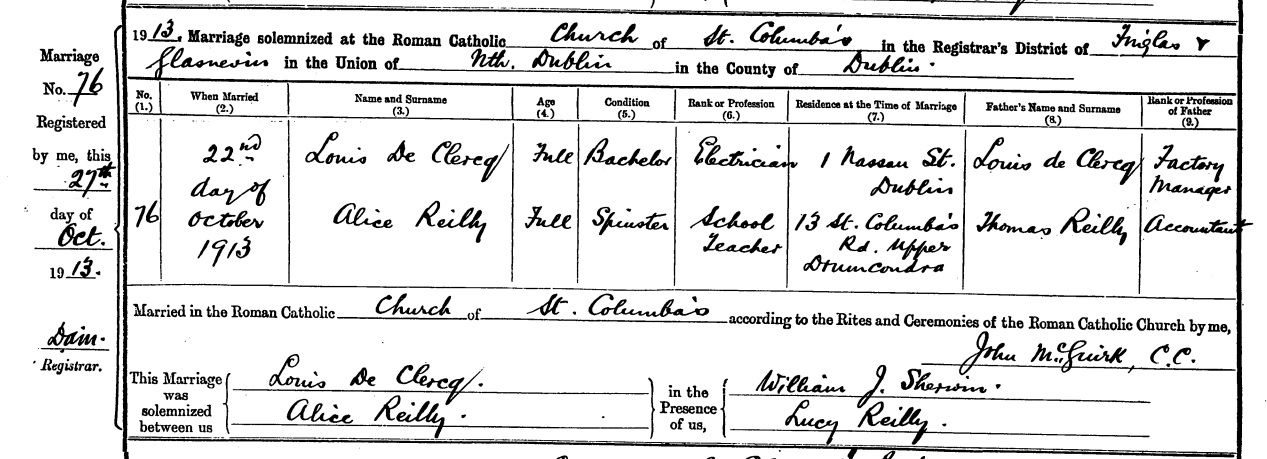 1913. Marriage solemnized at the Roman Catholic Church of St. Columba's in the Registrar's District of Finglas &
Glasnevin in the Union of Nth. Dublin in the County of Dublin.
Marriage
No. 76
Registered
by me, this
27th
day of
Oct.
1913.
Dain.
Registrar.
No. (1.) When Married (2.) Name and Surname (3.) Age (4.) Condition (5.) Rank or Profession (6.) Residence at the Time of Marriage (7.) Father's Name and Surname (8.) Rank or Profession of Father (9.)
76
22nd
day of
October
1913
Louis De Clercq Full Bachelor Electrician 1 Nassau St. Dublin Louis de Clercq Factory Manager
Alice Reilly Full Spinster School Teacher 13 St. Columba's Rd. Upper Drumcondra Thomas Reilly Accountant
Married in the Roman Catholic Church of St. Columba's according to the Rites and Ceremonies of the Roman Catholic Church by me,
John McGuirk, C.C.
This Marriage
was
solemnized
between us
Louis De Clercq.
Alice Reilly.
in the
Presence
of us,
William J. Sherwin.
Lucy Reilly.